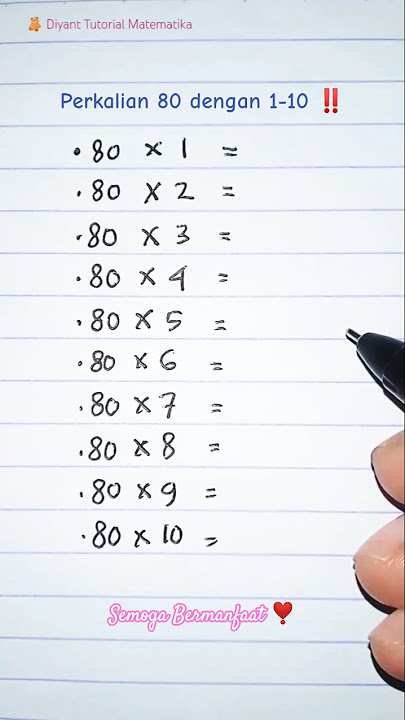 Diyant Tutorial Matematika
Perkalian 80 dengan 1-10 ‼️
• 80 x 1 =
• 80 x 2 =
• 80 x 3 =
• 80 x 4 =
• 80 x 5 =
• 80 x 6 =
• 80 x 7 =
• 80 x 8 =
• 80 x 9 =
• 80 x 10 =
Semoga Bermanfaat ❣️